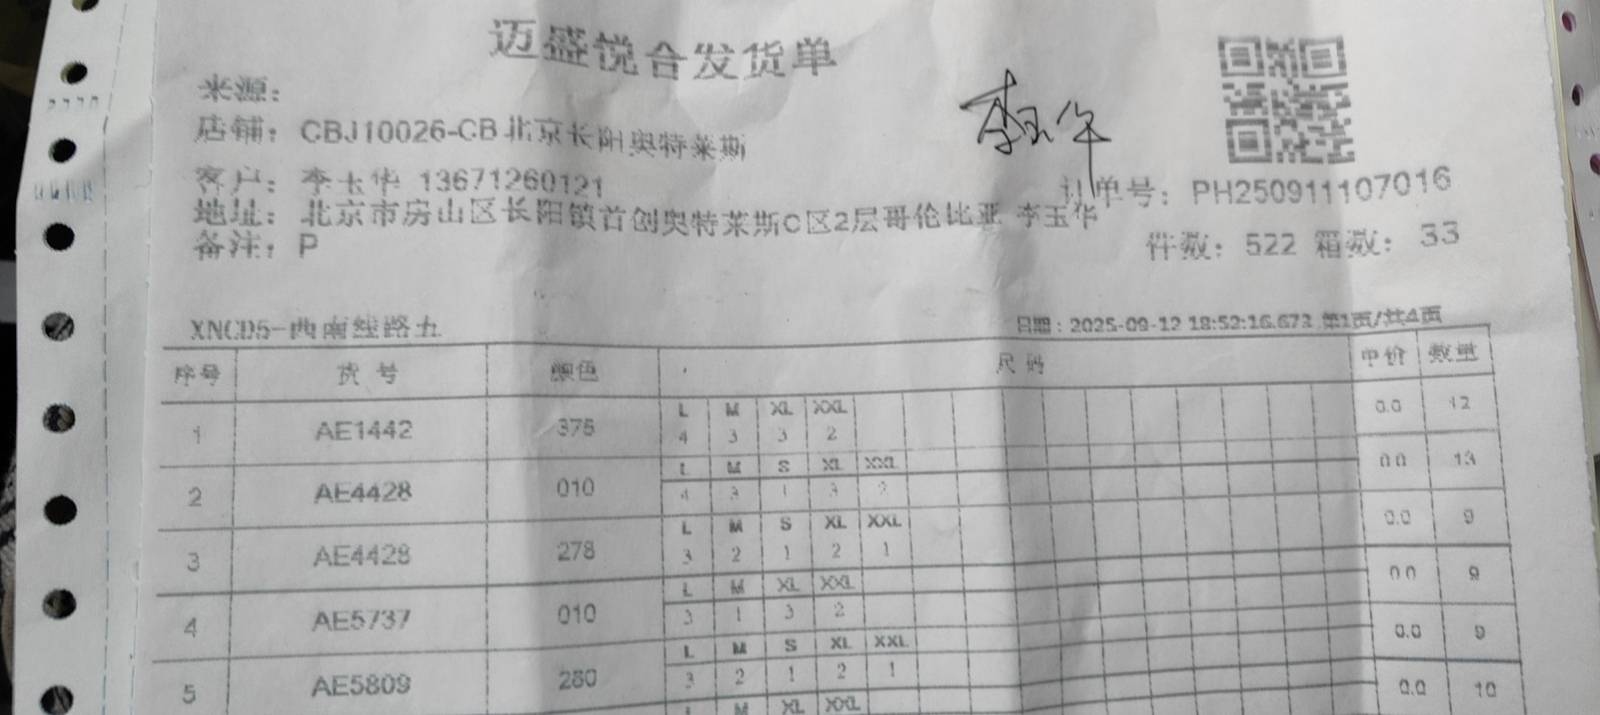 迈盛悦合发货单
来源：
店铺：CBJ10026-CB北京长阳奥特莱斯
李玉华
客户：李玉华 13671260121
订单号：PH250911107016
地址：北京市房山区长阳镇首创奥特莱斯C区2层哥伦比亚 李玉华
备注：P
件数：522 箱数：33
XNCD5-西南线路五
日期：2025-09-12 18:52:16.673 第1页/共4页
序号 货号 颜色 尺码 中价 数量
L M XL XXL
1 AE1442 375 4 3 3 2 0.0 12
L M S XL XXL
2 AE4428 010 4 3 1 3 2 0.0 13
L M S XL XXL
3 AE4428 278 3 2 1 2 1 0.0 9
L M XL XXL
4 AE5737 010 3 1 3 2 0.0 9
L M S XL XXL
5 AE5809 280 3 2 1 2 1 0.0 9
L M XL XXL
0.0 10